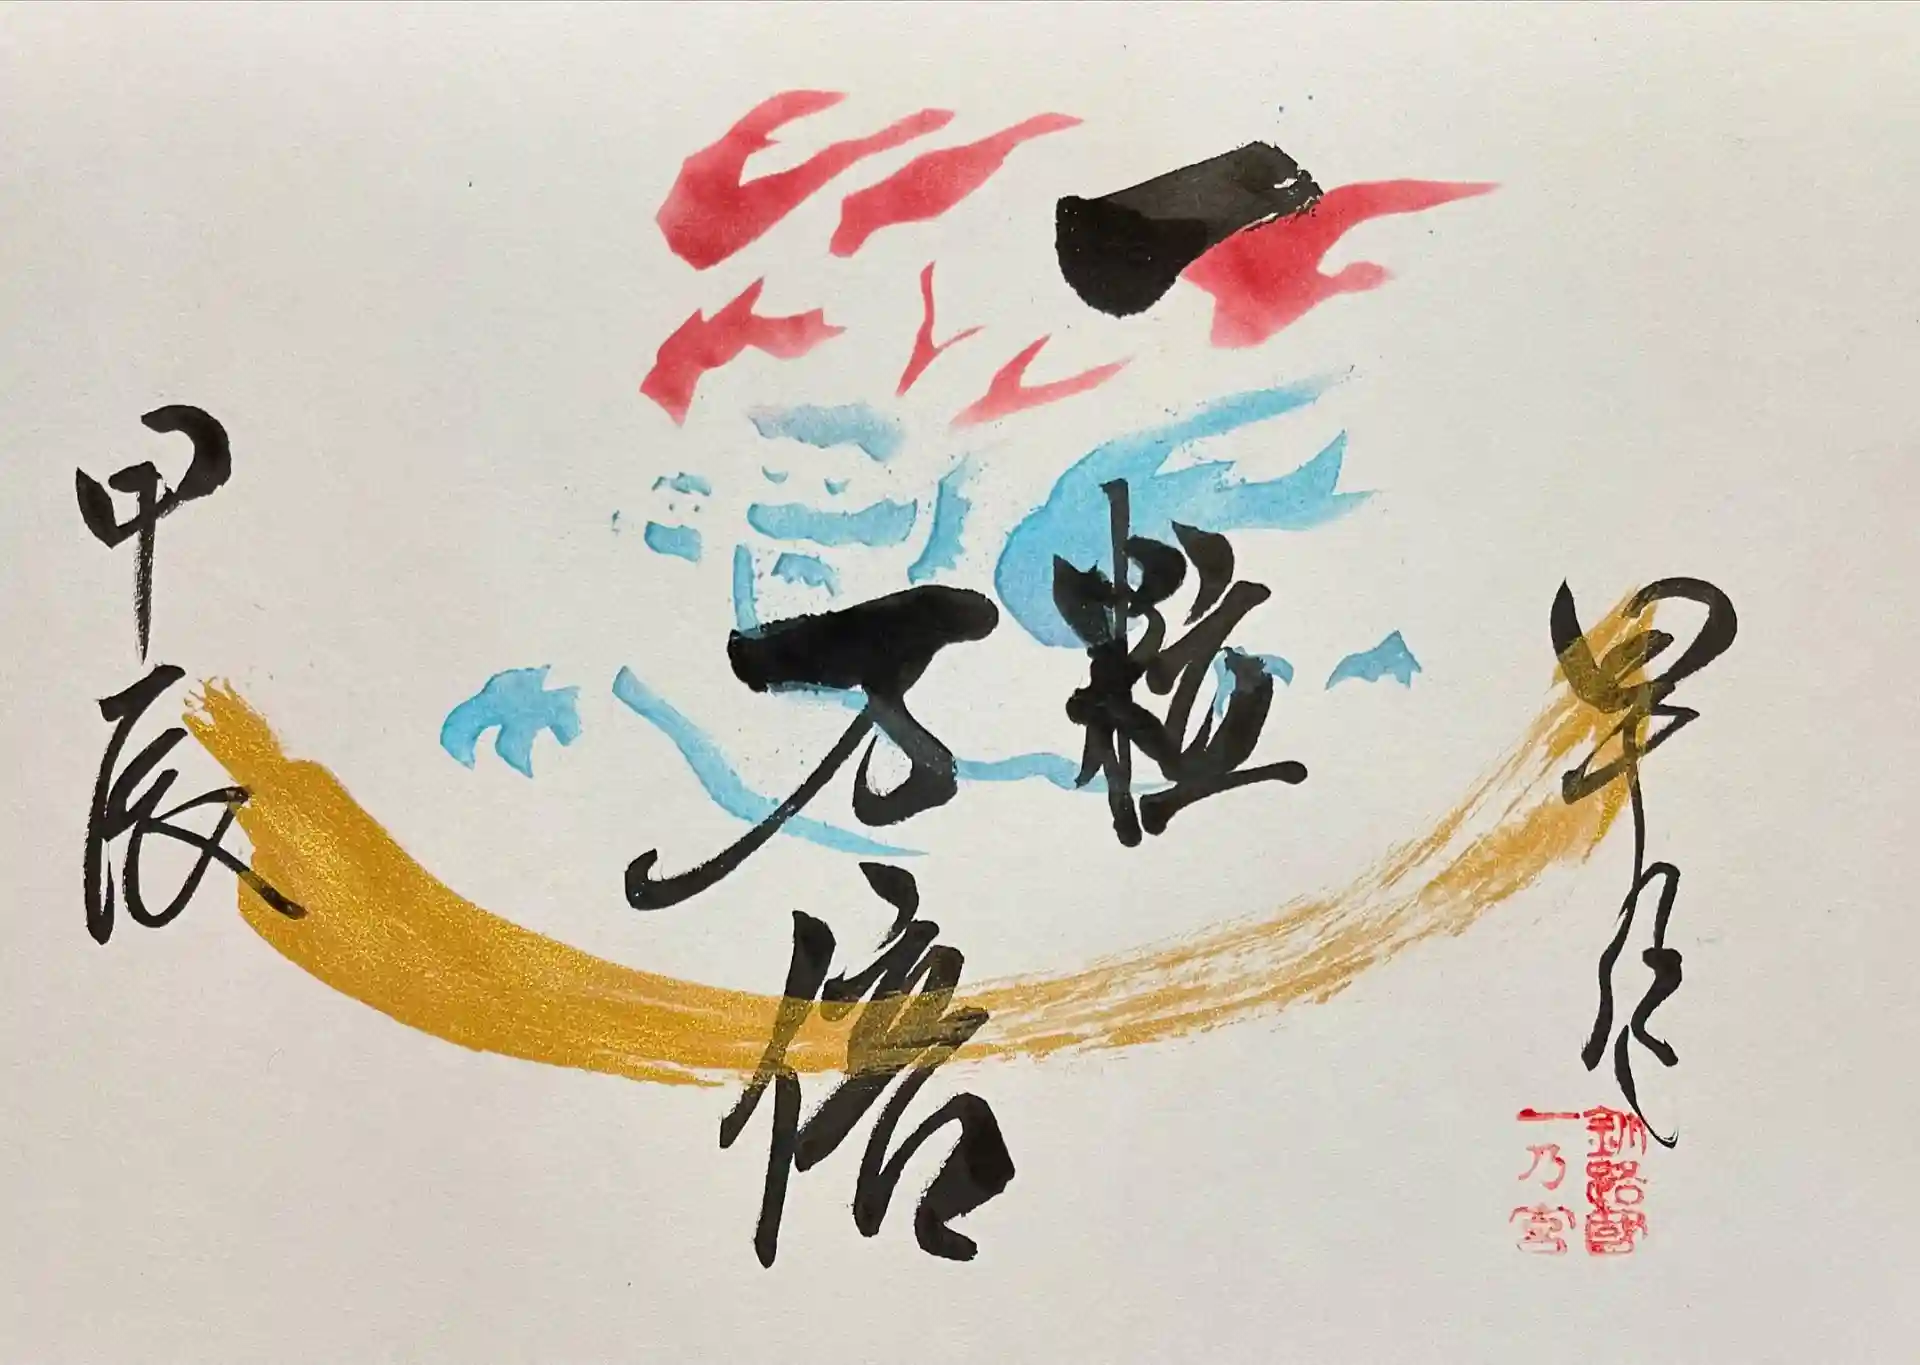 一粒
万倍
甲辰
釧路國
一乃宮